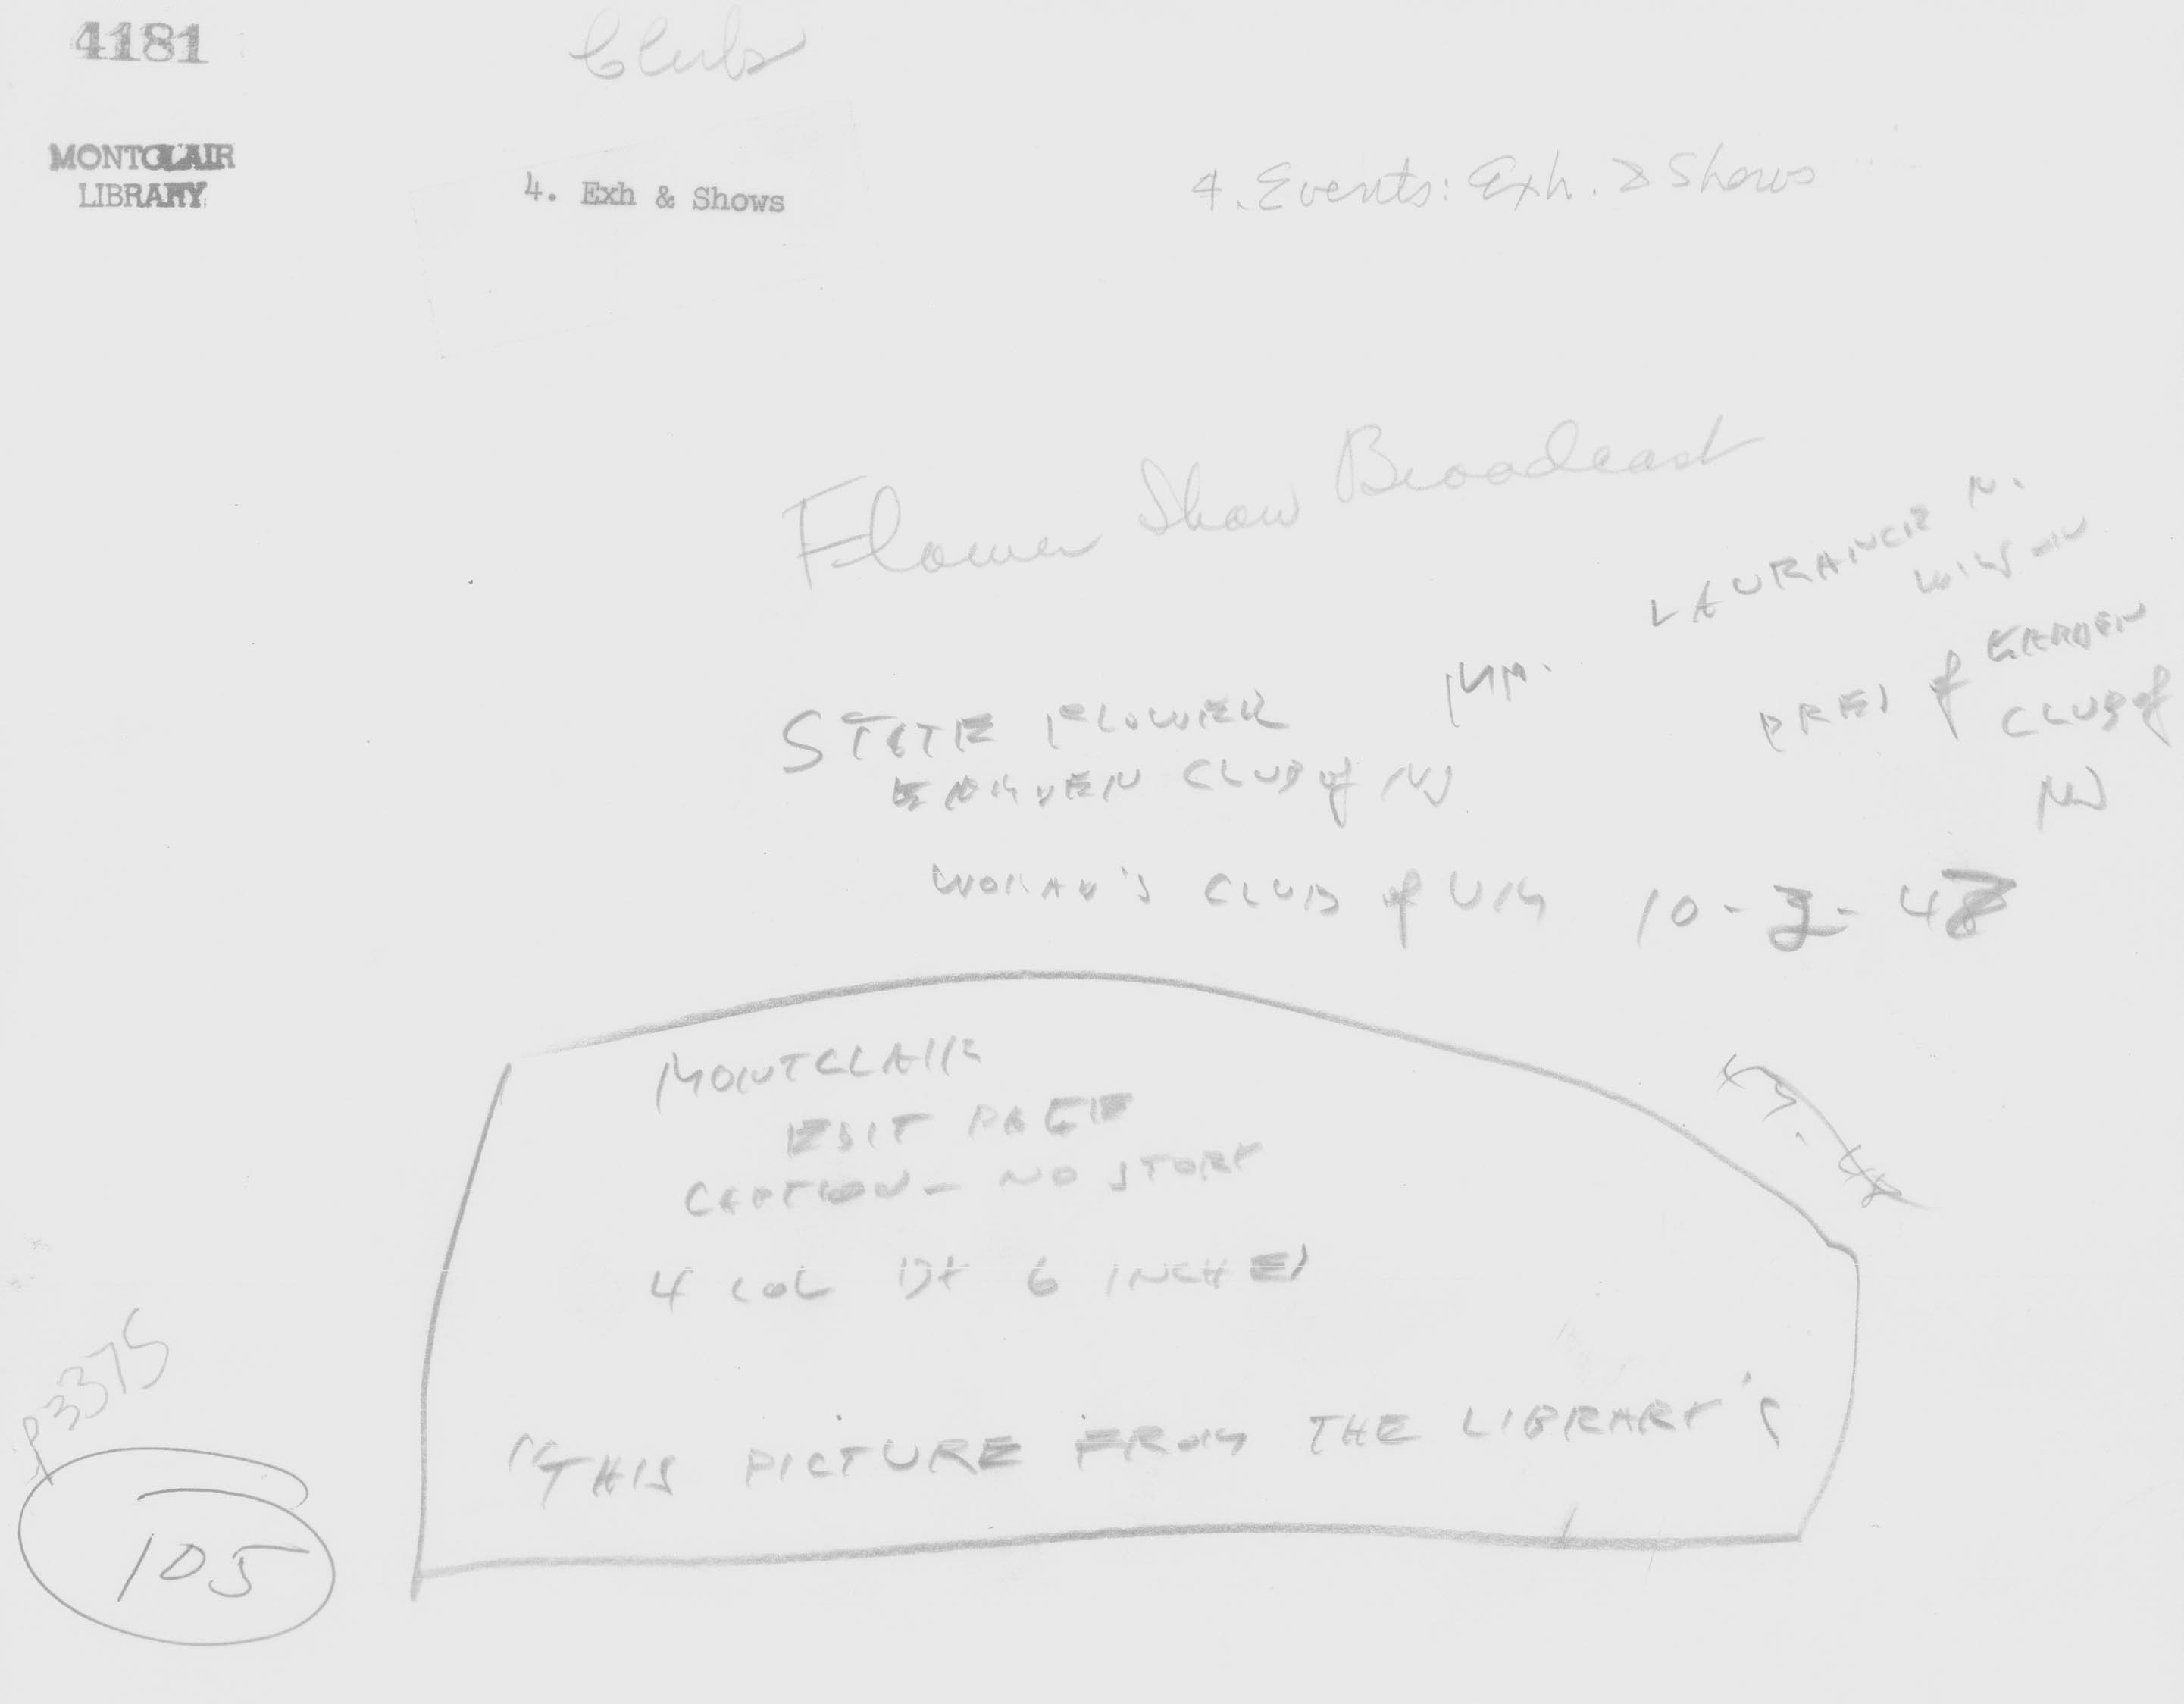 4181
Clubs
MONTCLAIR
LIBRARY
4. Exh & Shows
4. Events: Exh. & Shows
Flower Show Broadcast
LAURANCE N.
WILSON
STATE FLOWER
PRES of GARDEN
CLUB of
NJ
GARDEN CLUB of NJ
WOMAN'S CLUB of UM 10-3-48
MONTCLAIR
EDIT PAGE
CAPTION - NO STORY
4 COL BY 6 INCHES
P3375
"THIS PICTURE FROM THE LIBRARY"
105